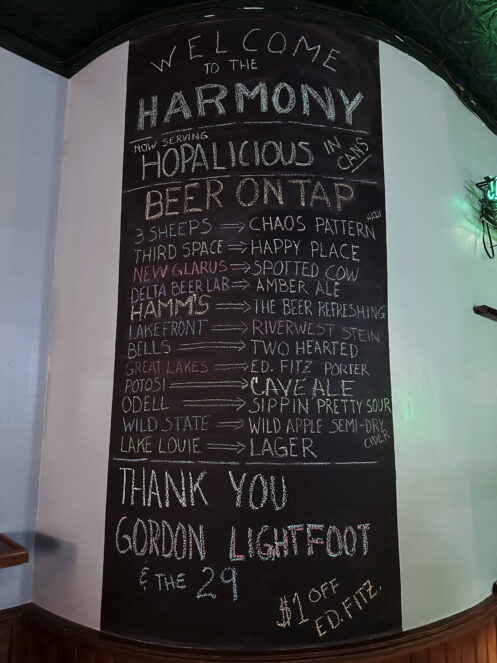 WELCOME
TO THE
HARMONY
NOW SERVING
HOPALICIOUS IN CANS
BEER ON TAP
3 SHEEPS ⇒ CHAOS PATTERN HAZY
THIRD SPACE ⇒ HAPPY PLACE
NEW GLARUS ⇒ SPOTTED COW
DELTA BEER LAB ⇒ AMBER ALE
HAMM'S ⇒ THE BEER REFRESHING
LAKEFRONT ⇒ RIVERWEST STEIN
BELLS ⇒ TWO HEARTED
GREAT LAKES ⇒ ED. FITZ PORTER
POTOSI ⇒ CAVE ALE
ODELL ⇒ SIPPIN' PRETTY SOUR
WILD STATE ⇒ WILD APPLE SEMI-DRY CIDER
LAKE LOUIE ⇒ LAGER
THANK YOU
GORDON LIGHTFOOT
& THE 29
$1 OFF
ED. FITZ.